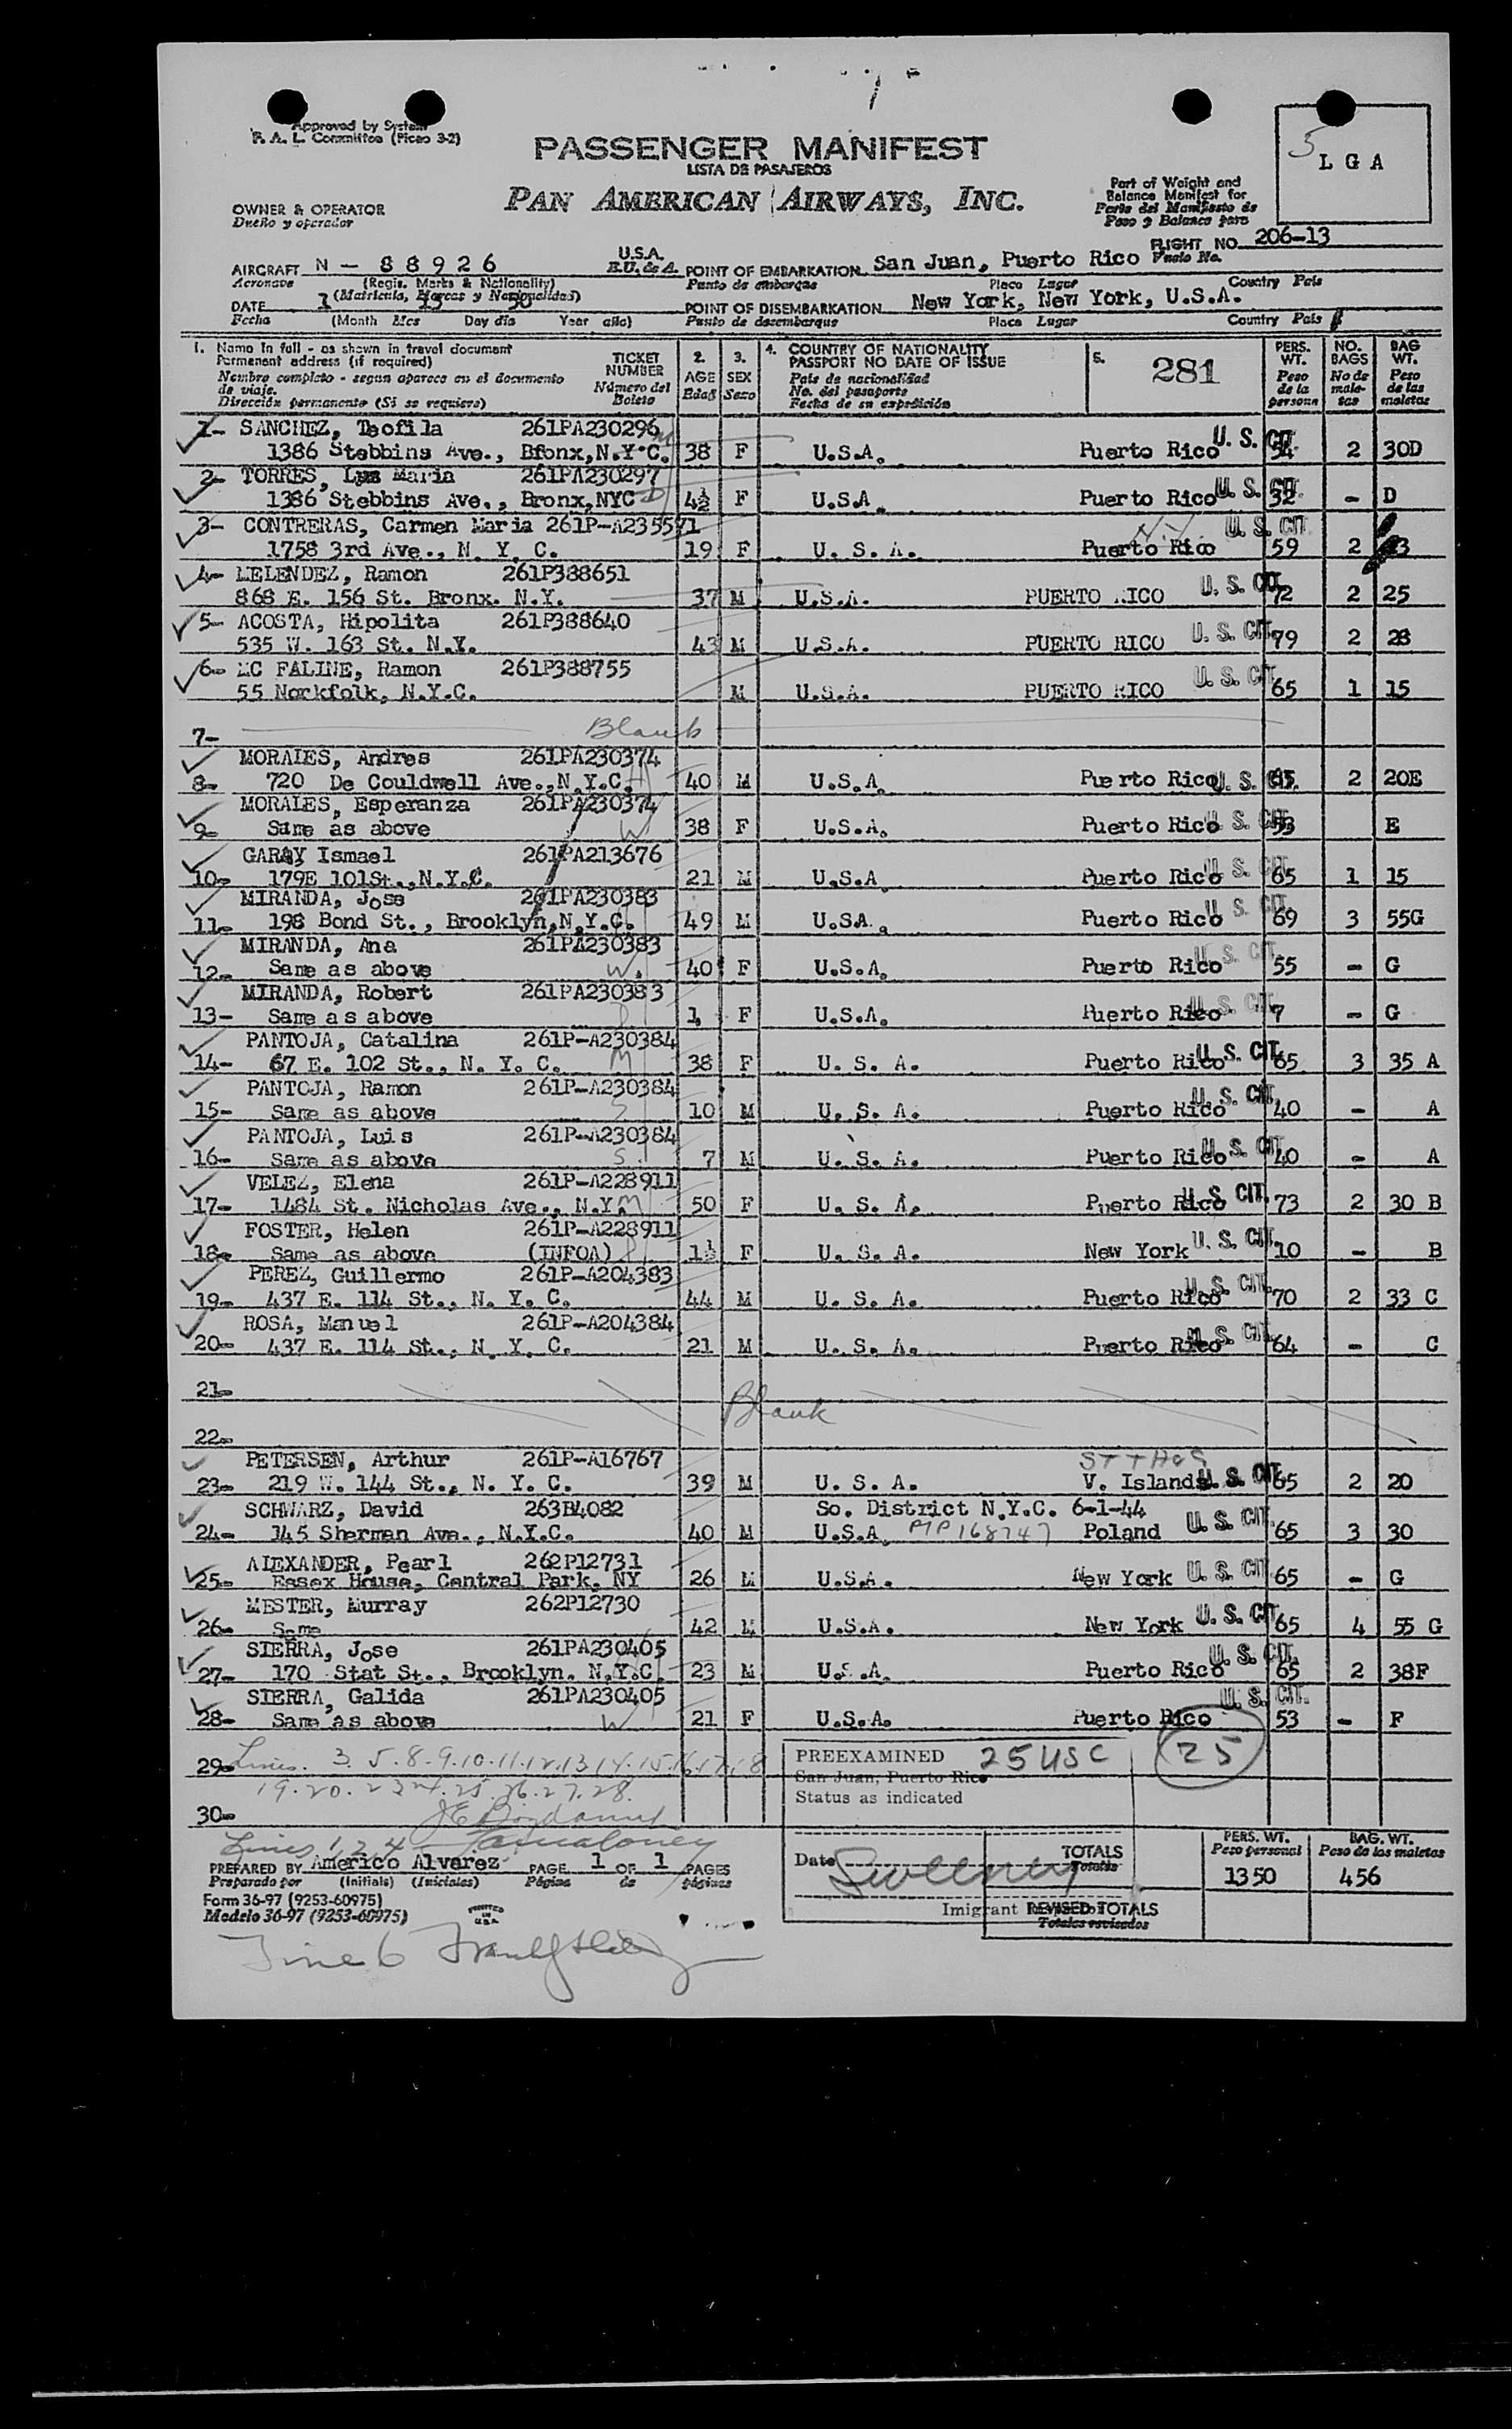 Approved by System
P. A. L. Committee (Picao 3-2)
5
L G A
PASSENGER MANIFEST
LISTA DE PASAJEROS
PAN AMERICAN AIRWAYS, INC.
Part of Weight and
Balance Manifest for
Parte del Manifiesto de
Peso y Balance para
OWNER & OPERATOR
Dueño y operador
FLIGHT NO. 206-13
Vuelo No.
AIRCRAFT N - 88926 U.S.A. POINT OF EMBARKATION San Juan, Puerto Rico
Aeronave (Regis. Marks & Nationality) E.U. de A. Punto de embarque Place Lugar Country País
(Matricula, Marcas y Nacionalidad)
DATE 1 13 50 POINT OF DISEMBARKATION New York, New York, U.S.A.
Fecha (Month Mes Day día Year año) Punto de desembarque Place Lugar Country País
1. Name in full - as shown in travel document
Permanent address (if required)
Nombre completo - segun aparece en el documento
de viaje.
Dirección permanente (Si se requiere)
TICKET
NUMBER
Número del
Boleto
2.
AGE
Edad
3.
SEX
Sexo
4. COUNTRY OF NATIONALITY
PASSPORT NO DATE OF ISSUE
País de nacionalidad
No. del pasaporte
Fecha de su expedición
5. 281
PERS.
WT.
Peso
de la
persona
NO.
BAGS
No de
male-
tas
BAG
WT.
Peso
de las
maletas
1- SANCHEZ, Teofila 261PA230296
1386 Stebbins Ave., Bronx,N.Y.C. 38 F U.S.A. Puerto Rico U. S. CIT. 54 2 30D
2- TORRES, Luz Maria 261PA230297
1386 Stebbins Ave., Bronx,NYC 4½ F U.S.A. Puerto Rico U. S. CIT. 32 - D
3- CONTRERAS, Carmen Maria 261P-A235591
1758 3rd Ave., N. Y. C. 19 F U. S. A. Puerto Rico U. S. CIT. 59 2
4- MELENDEZ, Ramon 261P388651
868 E. 156 St. Bronx. N.Y. 37 M U.S.A. PUERTO RICO U. S. CIT. 72 2 25
5- ACOSTA, Hipolita 261P388640
535 W. 163 St. N.Y. 43 M U.S.A. PUERTO RICO U. S. CIT. 79 2 28
6- MC FALINE, Ramon 261P388755
55 Norkfolk, N.Y.C. M U.S.A. PUERTO RICO U. S. CIT. 65 1 15
7- Blank
MORALES, Andres 261PA230374
8- 720 De Couldwell Ave.,N.Y.C. H 40 M U.S.A. Puerto Rico U. S. CIT. 65 2 20E
MORALES, Esperanza 261PA230374
9- Same as above W 38 F U.S.A. Puerto Rico U. S. CIT. 53 E
GARAY Ismael 261PA213676
10- 179E 101St.,N.Y.C. 21 M U.S.A Puerto Rico U. S. CIT. 65 1 15
MIRANDA, Jose 261PA230383
11- 198 Bond St., Brooklyn,N.Y.C. 49 M U.SA. Puerto Rico U. S. CIT. 69 3 55G
MIRANDA, Ana 261PA230383
12- Same as above W. 40 F U.S.A. Puerto Rico U. S. CIT. 55 - G
MIRANDA, Robert 261PA230383
13- Same as above 1 F U.S.A. Puerto Rico U. S. CIT. 7 - G
PANTOJA, Catalina 261P-A230384
14- 67 E. 102 St., N. Y. C. M 38 F U. S. A. Puerto Rico U. S. CIT. 65 3 35 A
PANTOJA, Ramon 261P-A230384
15- Same as above S 10 M U. S. A. Puerto Rico U. S. CIT. 40 - A
PANTOJA, Luis 261P-A230384
16- Same as above S. 7 M U. S. A. Puerto Rico U. S. CIT. 40 - A
VELEZ, Elena 261P-A228911
17- 1484 St. Nicholas Ave., N.Y. M 50 F U. S. A. Puerto Rico U. S. CIT. 73 2 30 B
FOSTER, Helen 261P-A228911
18- Same as above (INFOA) 1½ F U. S. A. New York U. S. CIT. 10 - B
PEREZ, Guillermo 261P-A204383
19- 437 E. 114 St., N. Y. C. 44 M U. S. A. Puerto Rico U. S. CIT. 70 2 33 C
ROSA, Manuel 261P-A204384
20- 437 E. 114 St., N. Y. C. 21 M U. S. A. Puerto Rico U. S. CIT. 64 - C
21-
Blank
22-
PETERSEN, Arthur 261P-A16767 ST THOS
23- 219 W. 144 St., N. Y. C. 39 M U. S. A. V. Islands U. S. CIT. 65 2 20
SCHWARZ, David 263B4082 So. District N.Y.C. 6-1-44
24- 145 Sherman Ave., N.Y.C. 40 M U.S.A. PTP 168747 Poland U. S. CIT. 65 3 30
ALEXANDER, Pearl 262P12731
25- Essex House, Central Park, NY 26 M U.S.A. New York U. S. CIT. 65 - G
MESTER, Murray 262P12730
26- Same 42 M U.S.A. New York U. S. CIT. 65 4 55 G
SIERRA, Jose 261PA230405
27- 170 Stat St., Brooklyn. N.Y.C. 23 M U.S.A. Puerto Rico U. S. CIT. 65 2 38F
SIERRA, Galida 261PA230405
28- Same as above W 21 F U.S.A. Puerto Rico U. S. CIT. 53 - F
29- Lines. 3. 5. 8. 9. 10. 11. 12. 13 14. 15. 16. 17. 18
19. 20. 23 24. 25. 26. 27. 28.
30-
PREEXAMINED 25 USC 25
San Juan, Puerto Rico
Status as indicated
Lines 1, 2, 4
PREPARED BY Americo Alvarez PAGE 1 OF 1 PAGES
Preparado por (Initials) (Iniciales) Página de páginas
Form 36-97 (9253-60975)
Modelo 36-97 (9253-60975)
PRINTED
IN
U.S.A.
Date
Imigrant Inspector
TOTALS
Totales
PERS. WT.
Peso personal
BAG. WT.
Peso de las maletas
1350 456
REVISED TOTALS
Totales revisados
Line 6